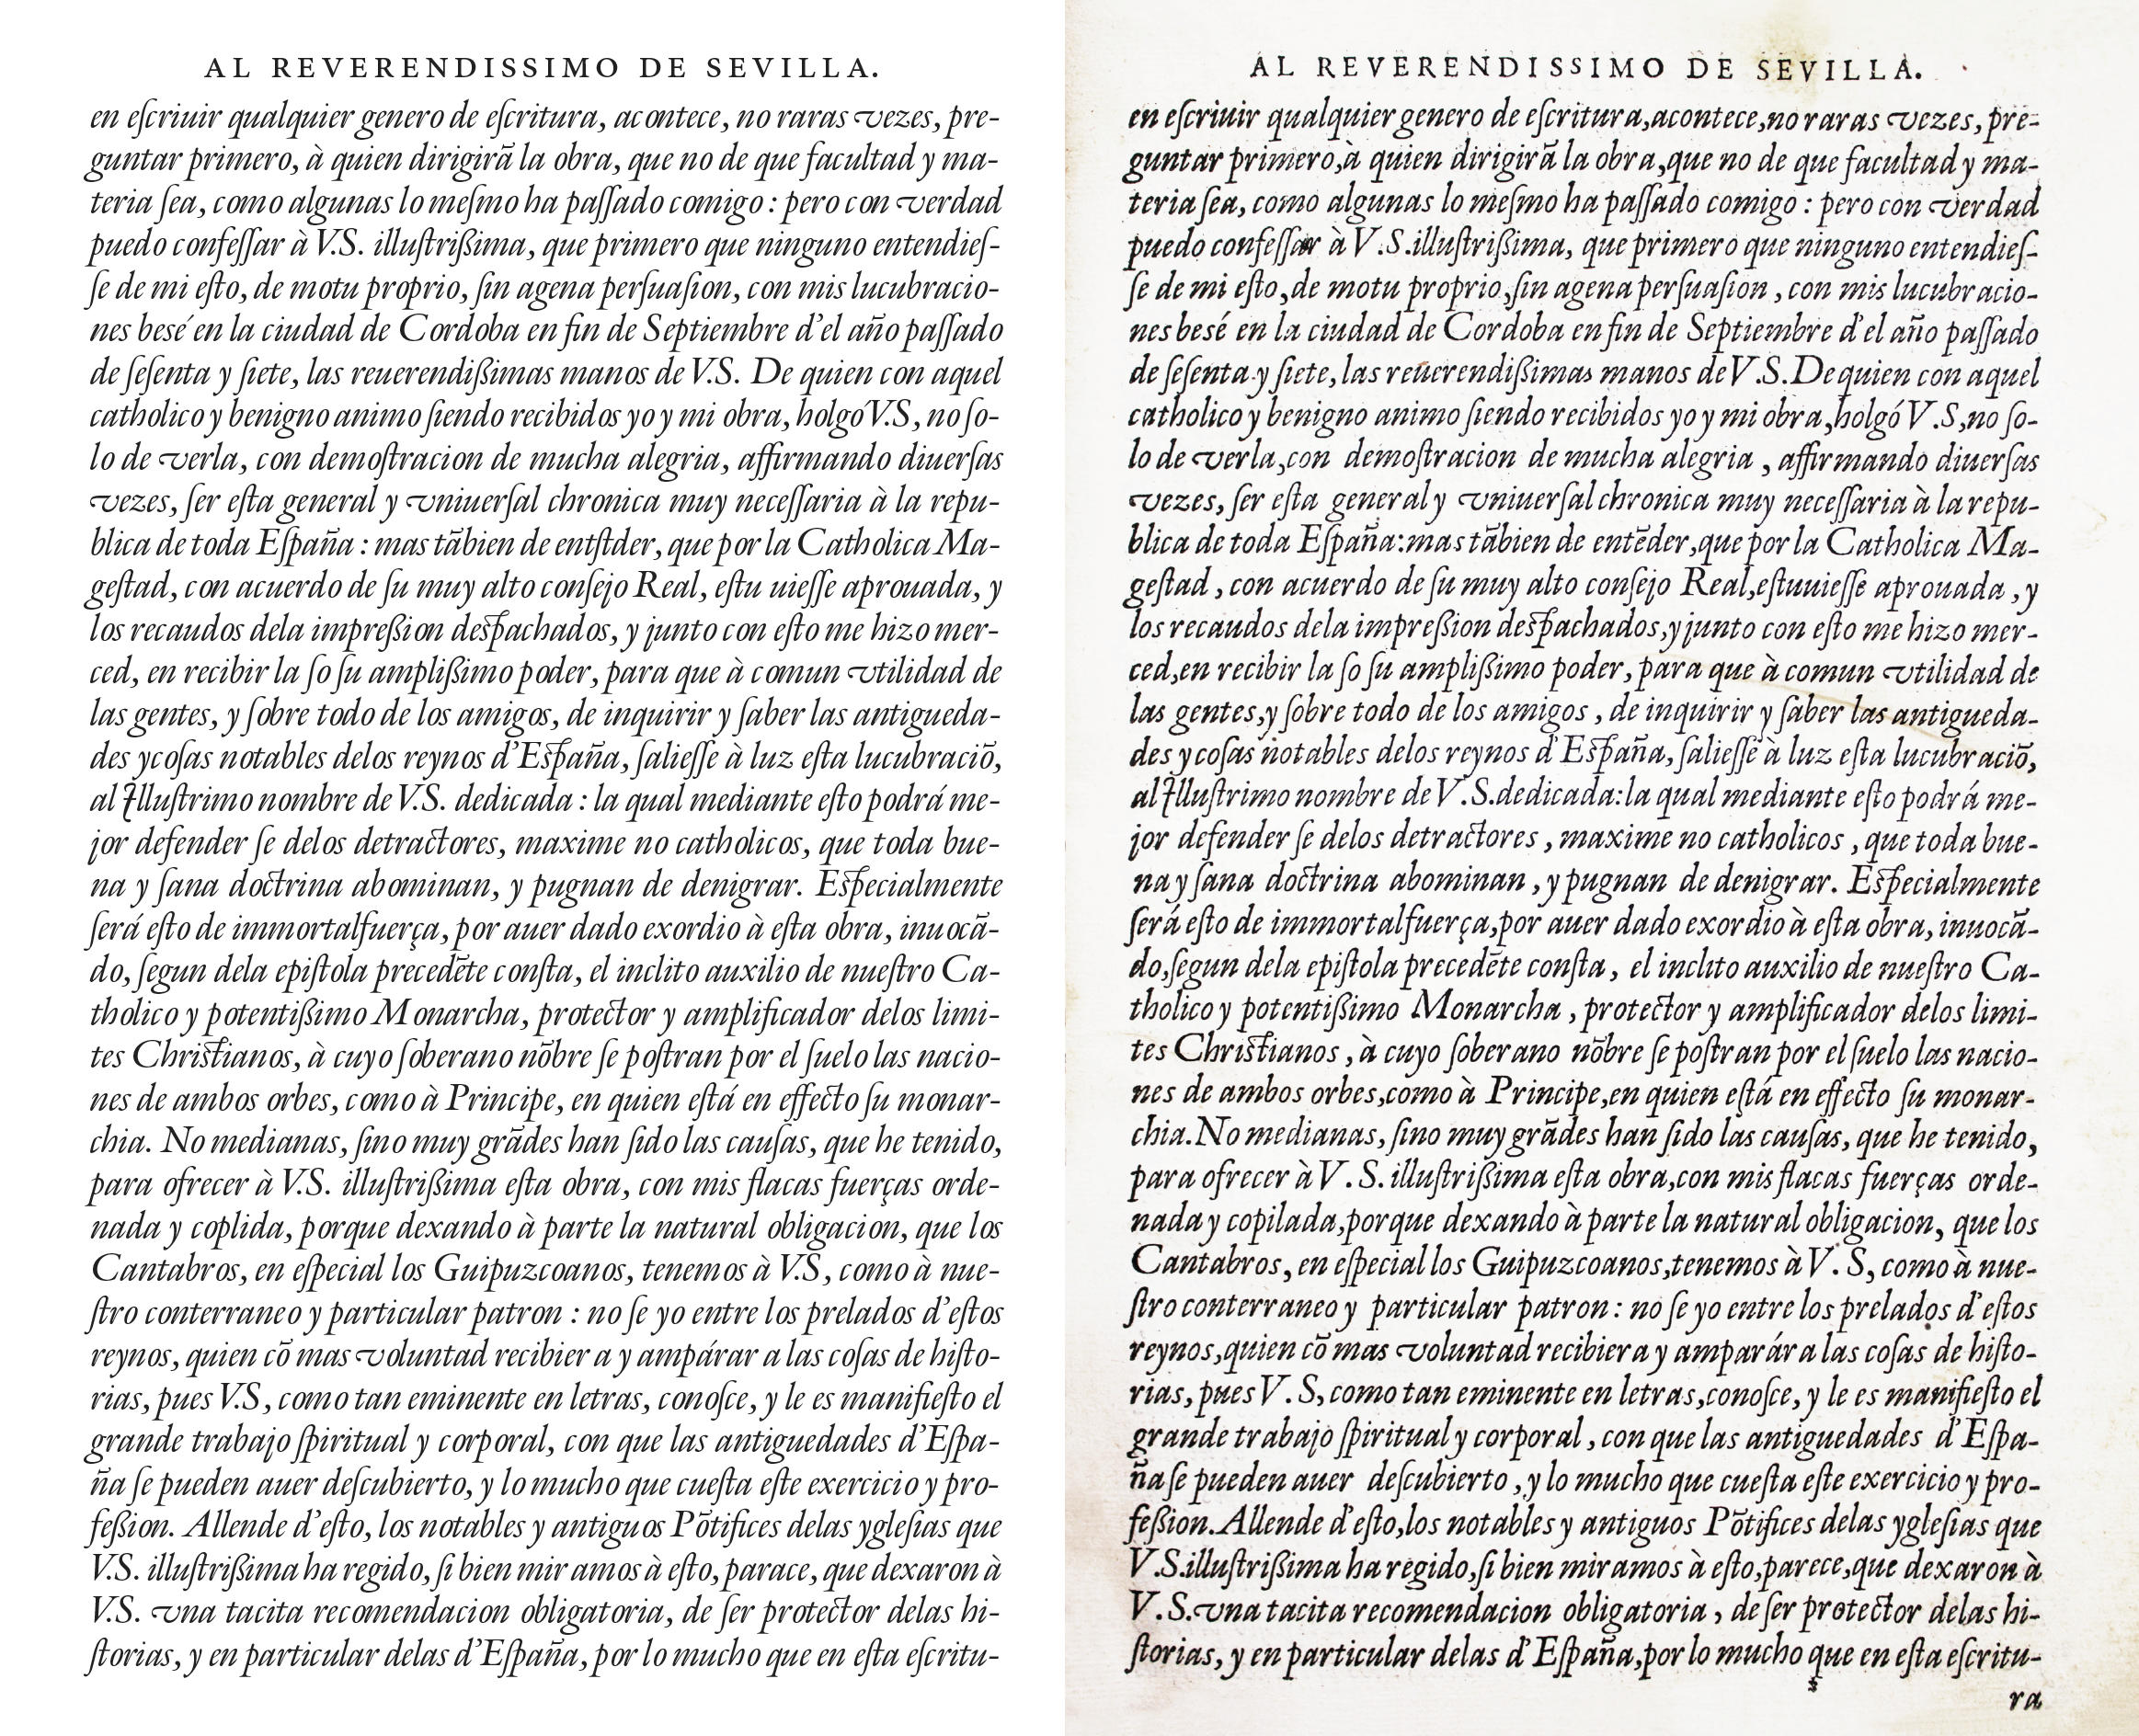 AL REVERENDISSIMO DE SEVILLA.
en eſcriuir qualquier genero de eſcritura, acontece, no raras vezes, pre-
guntar primero, à quien dirigirã la obra, que no de que facultad y ma-
teria ſea, como algunas lo meſmo ha paſſado comigo : pero con verdad
puedo confeſſar à V.S. illuſtrißima, que primero que ninguno entendieſ-
ſe de mi eſto, de motu proprio, ſin agena perſuaſion, con mis lucubracio-
nes besé en la ciudad de Cordoba en fin de Septiembre d’el año paſſado
de ſeſenta y ſiete, las reuerendißimas manos de V.S. De quien con aquel
catholico y benigno animo ſiendo recibidos yo y mi obra, holgó V.S, no ſo-
lo de verla, con demoſtracion de mucha alegria, affirmando diuerſas
vezes, ſer eſta general y vniuerſal chronica muy neceſſaria à la repu-
blica de toda Eſpaña : mas tãbien de entſtder, que por la Catholica Ma-
geſtad, con acuerdo de ſu muy alto conſejo Real, eſtu uieſſe aprouada, y
los recaudos dela impreßion despachados, y junto con eſto me hizo mer-
ced, en recibir la ſo ſu amplißimo poder, para que à comun vtilidad de
las gentes, y ſobre todo de los amigos, de inquirir y ſaber las antigueda-
des ycoſas notables delos reynos d’España, ſalieſſe à luz eſta lucubraciõ,
al Illuſtrimo nombre de V.S. dedicada : la qual mediante eſto podrá me-
jor defender ſe delos detractores, maxime no catholicos, que toda bue-
na y ſana doctrina abominan, y pugnan de denigrar. Especialmente
ſerá eſto de immortalfuerça, por auer dado exordio à eſta obra, inuocã-
do, ſegun dela epiſtola precedẽte conſta, el inclito auxilio de nueſtro Ca-
tholico y potentißimo Monarcha, protector y amplificador delos limi-
tes Christianos, à cuyo ſoberano nõbre ſe poſtran por el ſuelo las nacio-
nes de ambos orbes, como à Principe, en quien eſtá en effecto ſu monar-
chia. No medianas, ſino muy grãdes han ſido las cauſas, que he tenido,
para ofrecer à V.S. illuſtrißima eſta obra, con mis flacas fuerças orde-
nada y coplida, porque dexando à parte la natural obligacion, que los
Cantabros, en eſpecial los Guipuzcoanos, tenemos à V.S, como à nue-
ſtro conterraneo y particular patron : no ſe yo entre los prelados d’eſtos
reynos, quien cõ mas voluntad recibier a y ampárar a las coſas de hiſto-
rias, pues V.S, como tan eminente en letras, conoſce, y le es manifieſto el
grande trabajo ſpiritual y corporal, con que las antiguedades d’Eſpa-
ña ſe pueden auer deſcubierto, y lo mucho que cueſta eſte exercicio y pro-
feßion. Allende d’eſto, los notables y antiguos Põtifices delas ygleſias que
V.S. illuſtrißima ha regido, ſi bien mir amos à eſto, parace, que dexaron à
V.S. vna tacita recomendacion obligatoria, de ſer protector delas hi-
ſtorias, y en particular delas d’Eſpaña, por lo mucho que en eſta eſcritu-
AL REVERENDISSIMO DE SEVILLA.
en eſcriuir qualquier genero de eſcritura,acontece,no raras vezes, pre-
guntar primero,à quien dirigirã la obra,que no de que facultad y ma-
teria ſea, como algunas lo meſmo ha paſſado comigo : pero con verdad
puedo confeſſar à V.S.illuſtrißima, que primero que ninguno entendieſ-
ſe de mi eſto,de motu proprio,ſin agena perſuaſion , con mis lucubracio-
nes besé en la ciudad de Cordoba en fin de Septiembre d’el año paſſado
de ſeſenta y ſiete, las reuerendißimas manos de V.S.De quien con aquel
catholico y benigno animo ſiendo recibidos yo y mi obra,holgó V.S,no ſo-
lo de verla,con demoſtracion de mucha alegria , affirmando diuerſas
vezes, ſer eſta general y vniuerſal chronica muy neceſſaria à la repu-
blica de toda Eſpaña:mas tãbien de entẽder,que por la Catholica Ma-
geſtad , con acuerdo de ſu muy alto conſejo Real,eſtuuieſſe aprouada , y
los recaudos dela impreßion despachados,y junto con eſto me hizo mer-
ced,en recibir la ſo ſu amplißimo poder, para que à comun vtilidad de
las gentes,y ſobre todo de los amigos , de inquirir y ſaber las antigueda-
des y coſas notables delos reynos d’España, ſalieſſe à luz eſta lucubraciõ,
al Illuſtrimo nombre de V.S.dedicada:la qual mediante eſto podrá me-
jor defender ſe delos detractores , maxime no catholicos , que toda bue-
na y ſana doctrina abominan , y pugnan de denigrar. Especialmente
ſerá eſto de immortalfuerça,por auer dado exordio à eſta obra, inuocã-
do,ſegun dela epiſtola precedẽte conſta , el inclito auxilio de nueſtro Ca-
tholico y potentißimo Monarcha , protector y amplificador delos limi-
tes Christianos , à cuyo ſoberano nõbre ſe poſtran por el ſuelo las nacio-
nes de ambos orbes,como à Principe,en quien eſtá en effecto ſu monar-
chia.No medianas, ſino muy grãdes han ſido las cauſas, que he tenido,
para ofrecer à V.S. illuſtrißima eſta obra,con mis flacas fuerças orde-
nada y copilada,porque dexando à parte la natural obligacion, que los
Cantabros, en eſpecial los Guipuzcoanos,tenemos à V.S, como à nue-
ſtro conterraneo y particular patron : no ſe yo entre los prelados d’eſtos
reynos,quien cõ mas voluntad recibiera y amparára las coſas de hiſto-
rias, pues V.S, como tan eminente en letras,conoſce, y le es manifieſto el
grande trabajo ſpiritual y corporal , con que las antiguedades d’Eſpa-
ña ſe pueden auer deſcubierto , y lo mucho que cueſta eſte exercicio y pro-
feßion.Allende d’eſto,los notables y antiguos Põtifices delas ygleſias que
V.S.illuſtrißima ha regido,ſi bien miramos à eſto,parece,que dexaron à
V.S.vna tacita recomendacion obligatoria , de ſer protector delas hi-
ſtorias, y en particular delas d’Eſpaña,por lo mucho que en eſta eſcritu-
ra